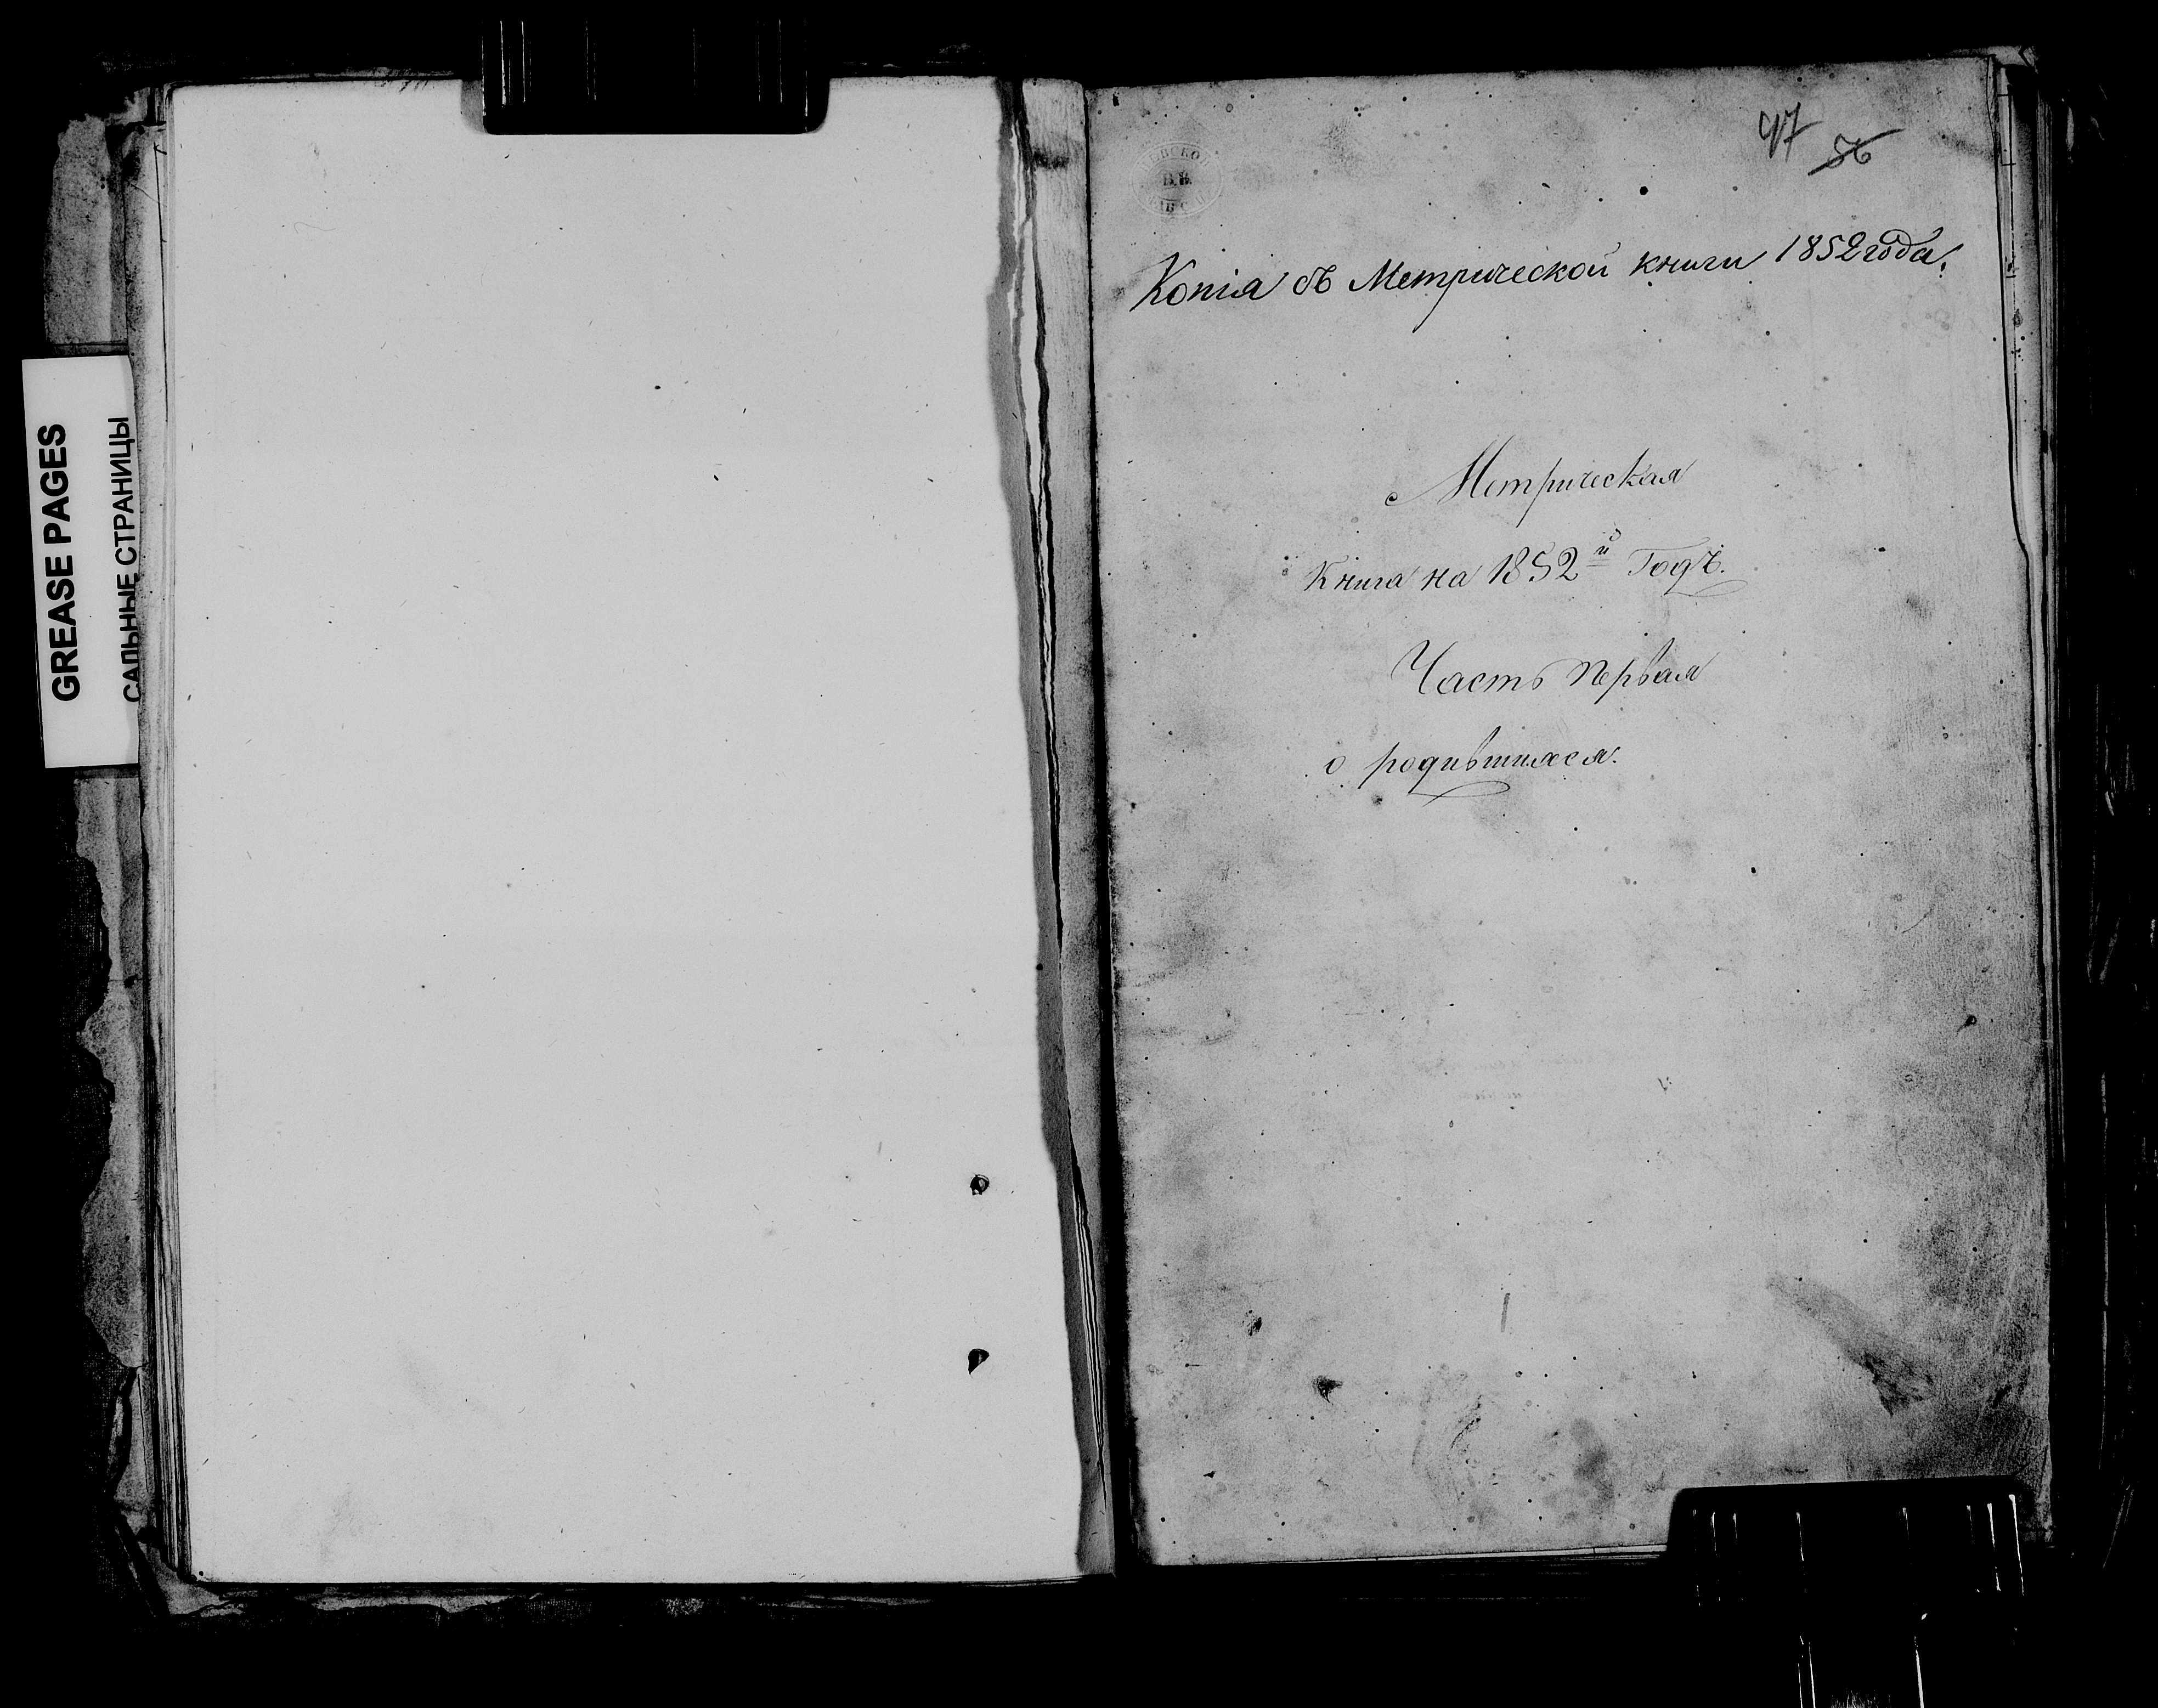 GREASE PAGES
САЛЬНЫЕ СТРАНИЦЫ
47
56
Копія съ Метрической книги 1852 года.
Метрическая
Книга на 1852й Годъ.
Часть первая
о родившихся.